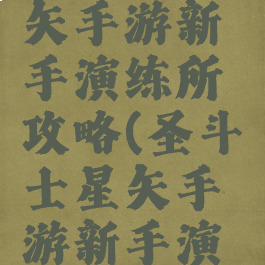 矢手游新
手演练所
攻略(圣斗
士星矢手
游新手演